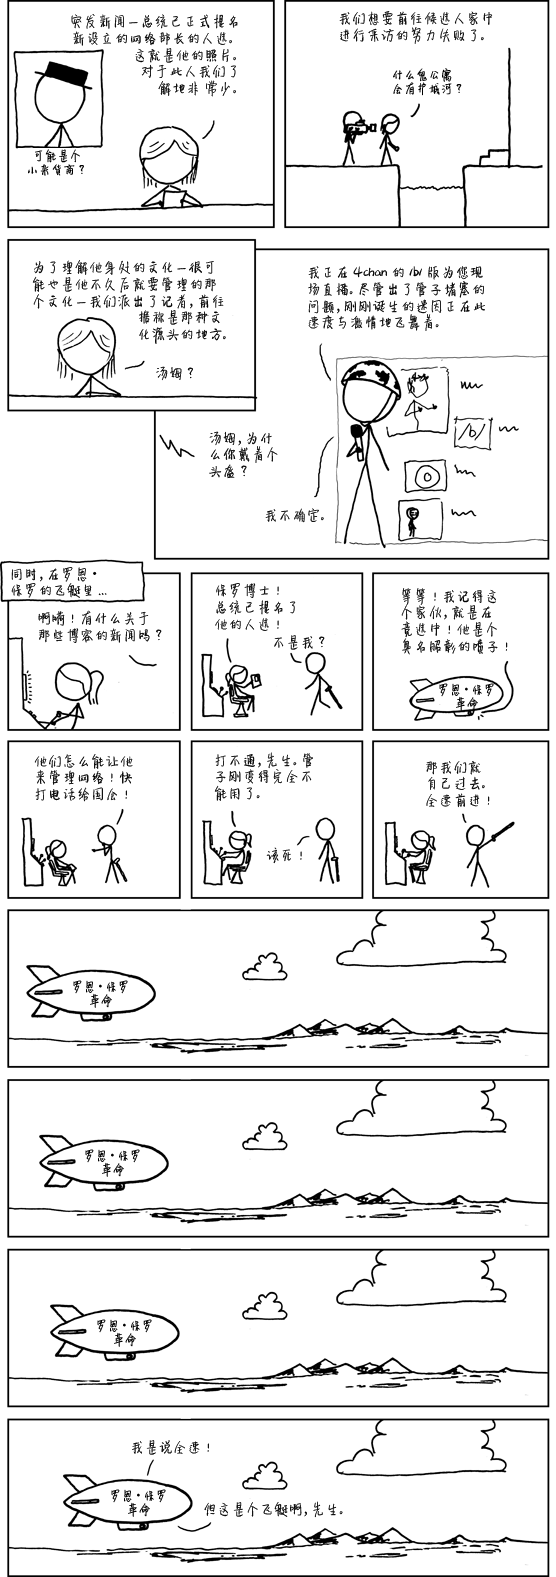 突发新闻—总统已正式提名
新设立的网络部长的人选。
这就是他的照片。
对于此人我们了
解地非常少。
可能是个
小杂货商？
我们想要前往候选人家中
进行采访的努力失败了。
什么鬼公寓
会有护城河？
为了理解他身处的文化—很可
能也是他不久后就要管理的那
个文化—我们派出了记者，前往
据称是那种文
化源头的地方。
汤姆？
我正在 4chan 的 /b/ 版为您现
场直播。尽管出了管子堵塞的
问题，刚刚诞生的迷因正在此
速度与激情地飞舞着。
/b/
汤姆，为什
么你戴着个
头盔？
我不确定。
同时，在罗恩·
保罗的飞艇里...
啊嗬！有什么关于
那些博客的新闻吗？
保罗博士！
总统已提名了
他的人选！
不是我？
等等！我记得这
个家伙，就是在
竞选中！他是个
臭名昭彰的喷子！
罗恩·保罗
革命
他们怎么能让他
来管理网络！快
打电话给国会！
打不通，先生。管
子刚变得完全不
能用了。
该死！
那我们就
自己过去。
全速前进！
罗恩·保罗
革命
罗恩·保罗
革命
罗恩·保罗
革命
我是说全速！
罗恩·保罗
革命
但这是个飞艇啊，先生。